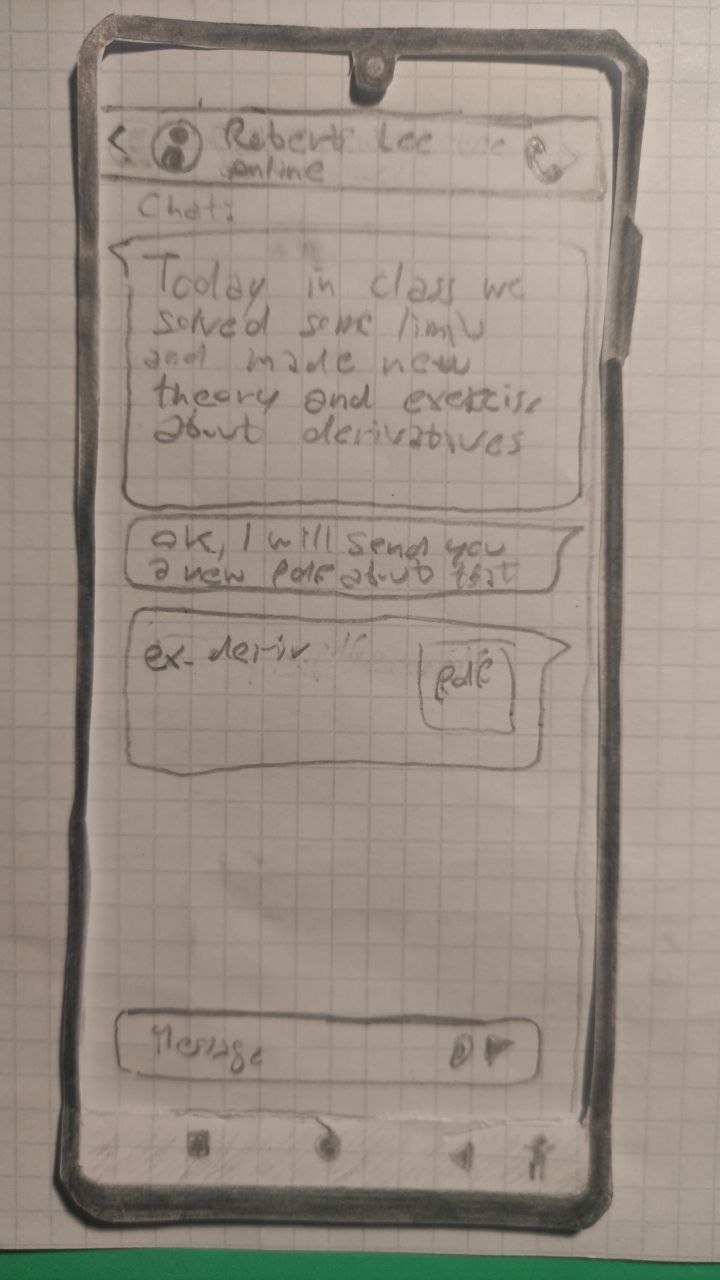 Robert Lee
online
Chat:
Today in class we
solved some
and made new
theory and exercise
about derivatives
ok, I will send you
a new pdf about that
ex. deriv
pdf
Message